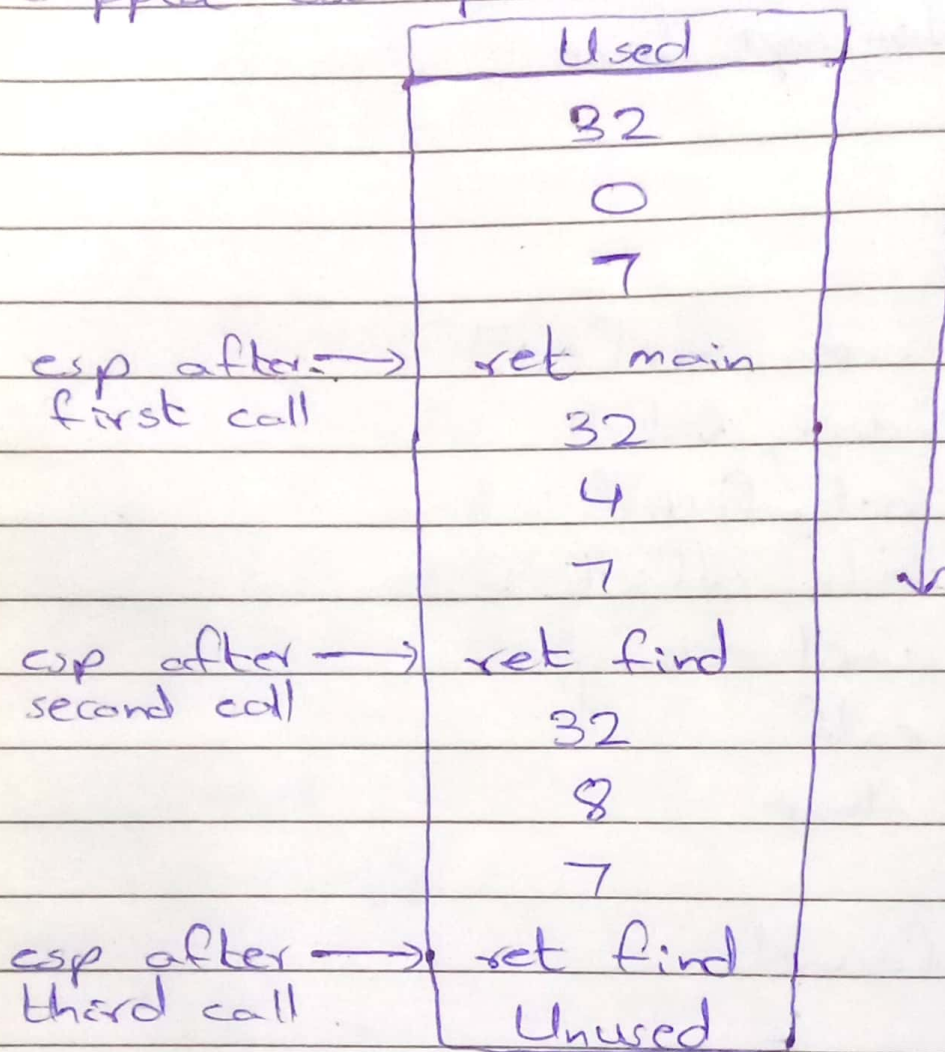 Used
32
0
7
esp after → ret main
first call
32
4
7
esp after → ret find
second call
32
8
7
esp after → ret find
third call
Unused